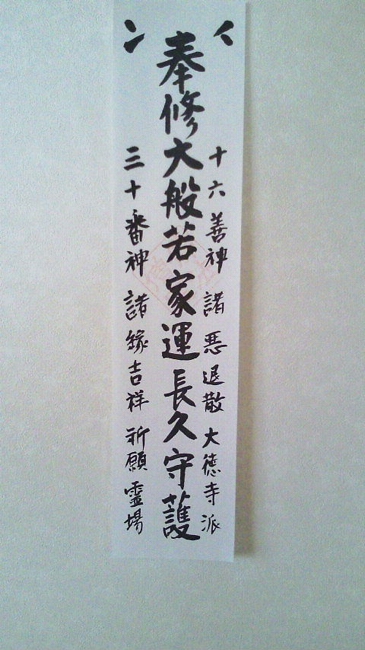 十六善神 諸悪退散 大徳寺派
奉修大般若家運長久守護
三十番神 諸縁吉祥 祈願霊場